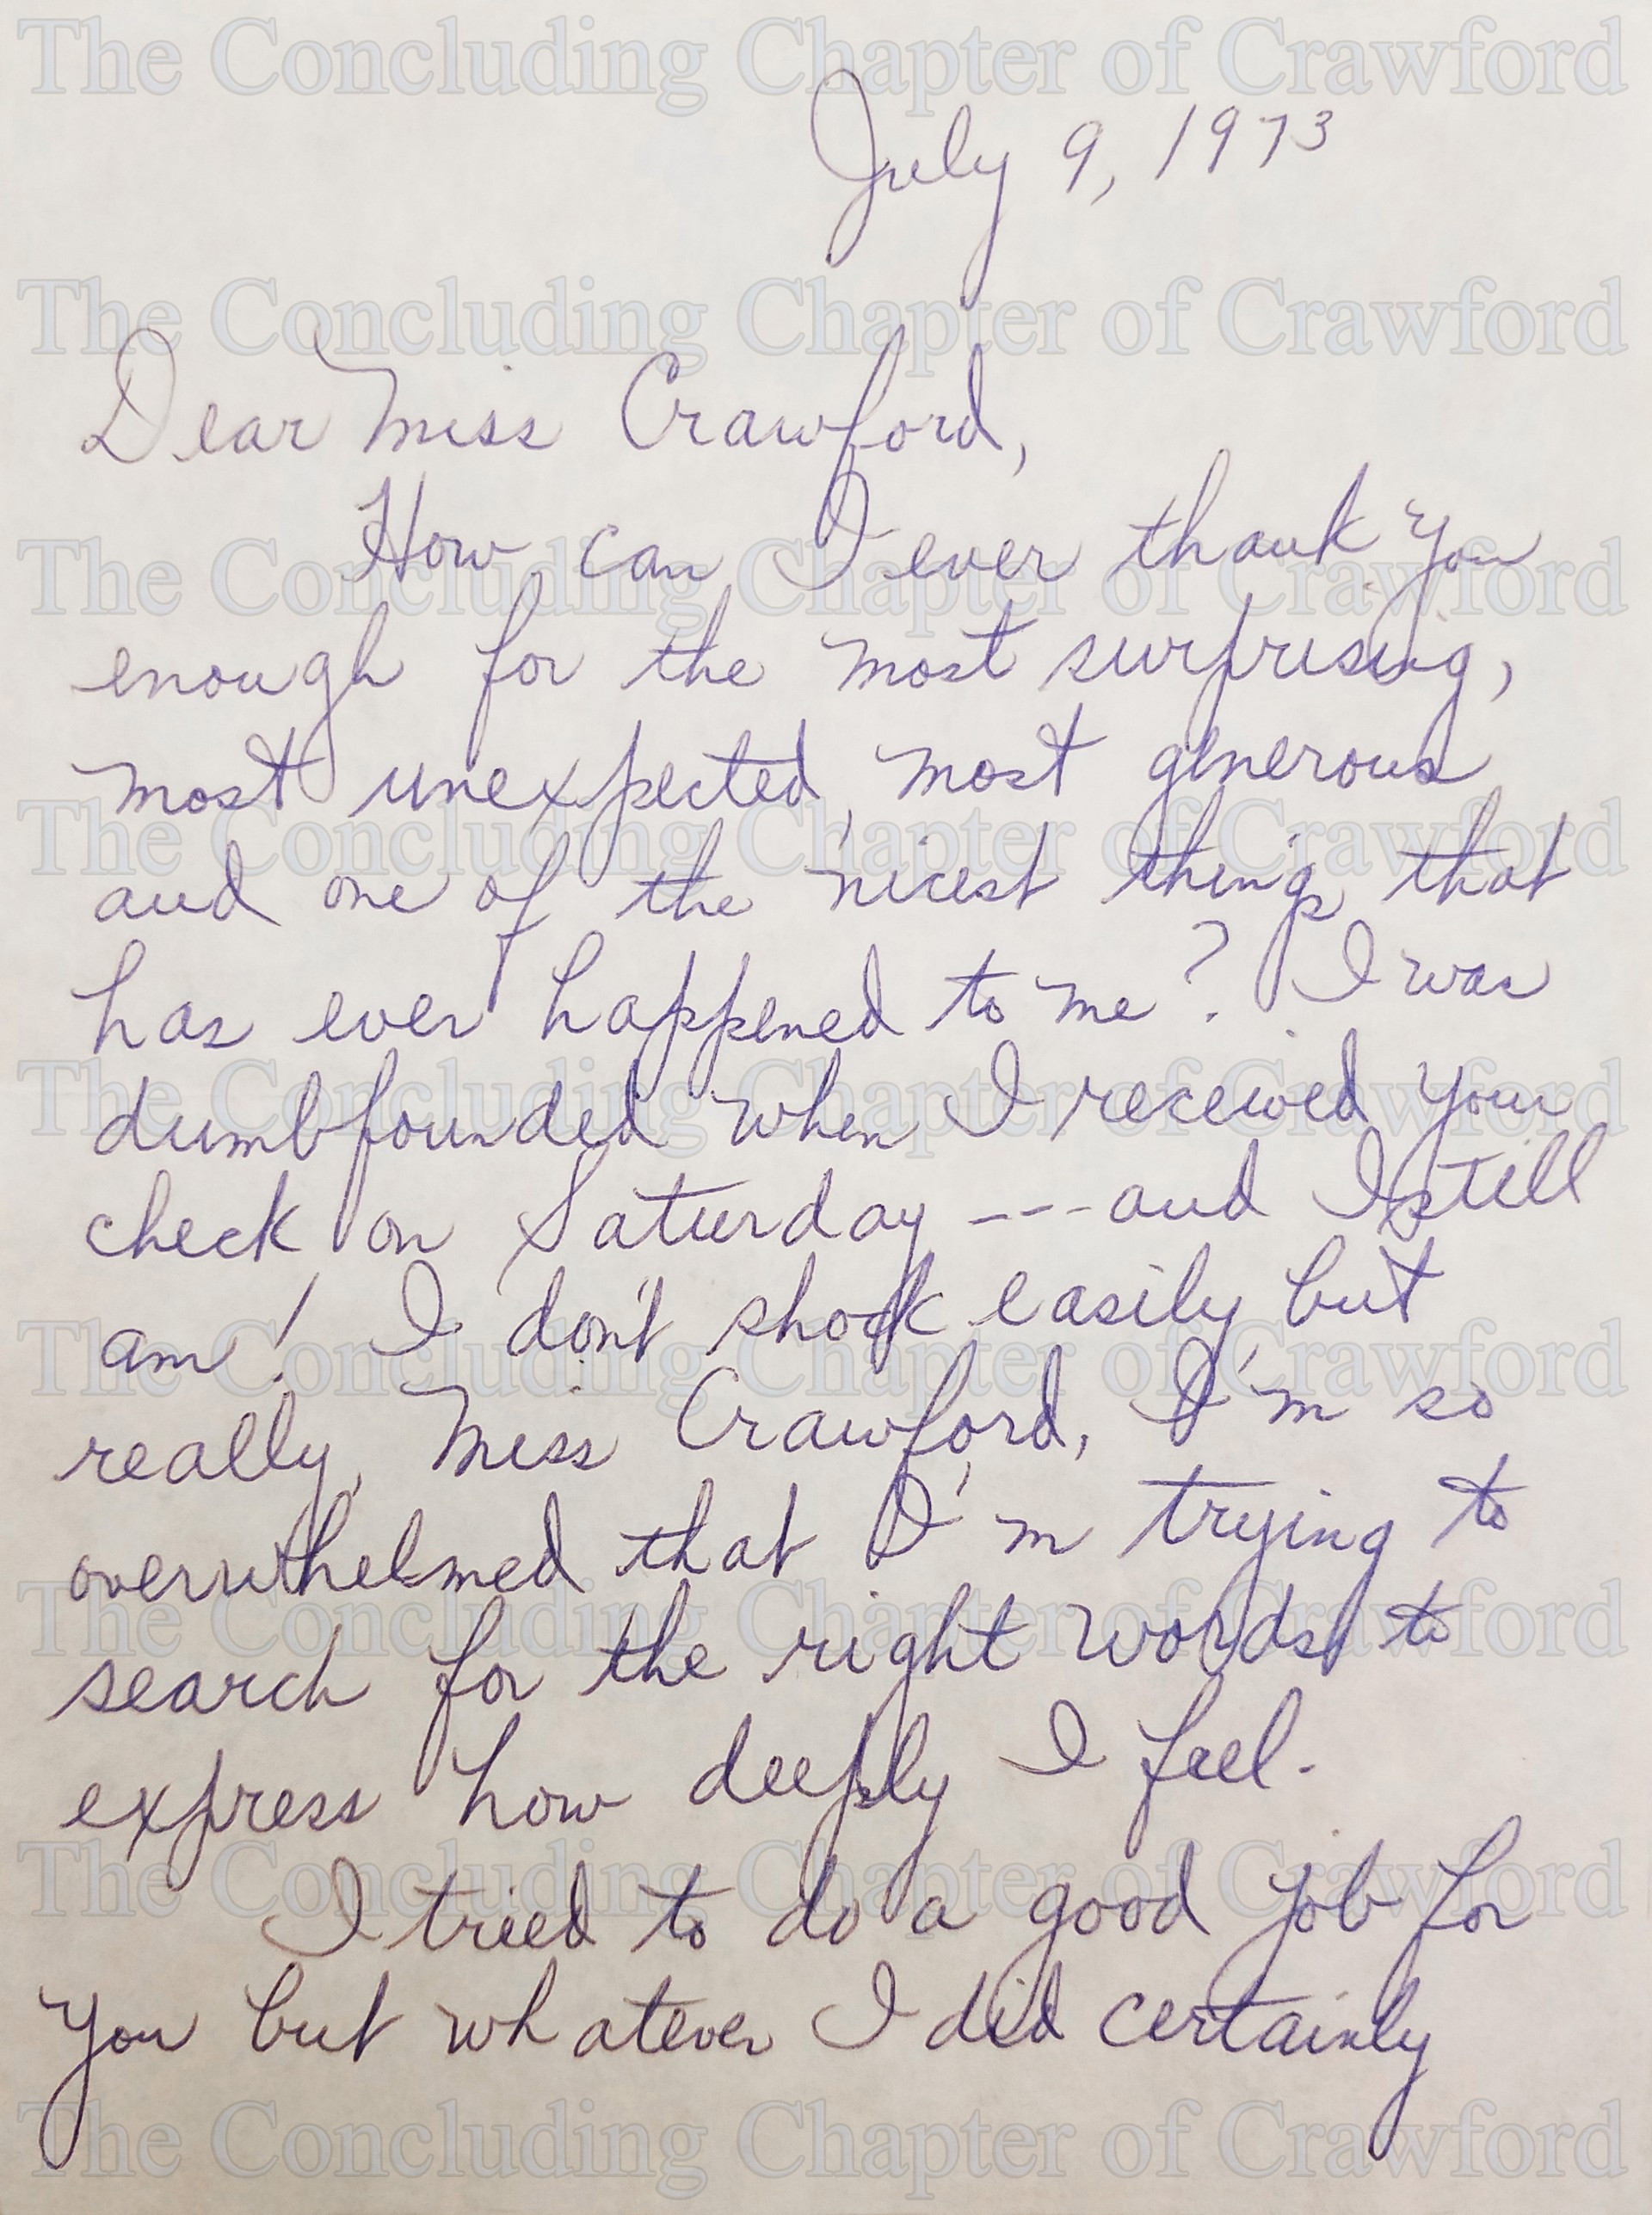 The Concluding Chapter of Crawford
July 9, 1973
The Concluding Chapter of Crawford
Dear Miss Crawford,
How can I ever thank you
The Concluding Chapter of Crawford
enough for the most surprising,
most unexpected, most generous
The Concluding Chapter of Crawford
and one of the nicest things that
has ever happened to me? I was
The Concluding Chapter of Crawford
dumbfounded when I received your
check on Saturday --- and I still
am! I don't shock easily, but
The Concluding Chapter of Crawford
really, Miss Crawford, I'm so
overwhelmed that I'm trying to
The Concluding Chapter of Crawford
search for the right words to
express how deeply I feel.
The Concluding Chapter of Crawford
I tried to do a good job for
you but whatever I did certainly
The Concluding Chapter of Crawford